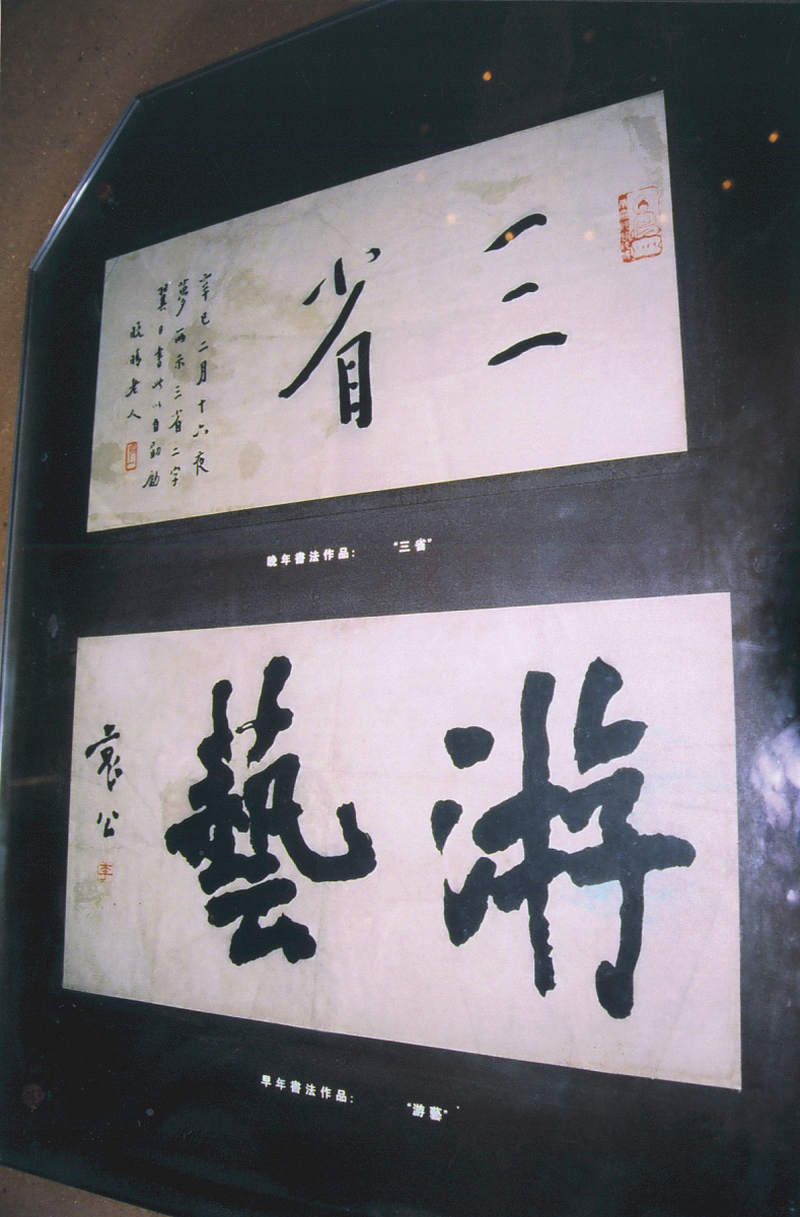 三省
辛巳二月十六夜
夢所示三省二字
翼日書此以自勖勵
晚晴老人
晚年書法作品： “三省”
游藝
哀公
李
早年書法作品： “游藝”